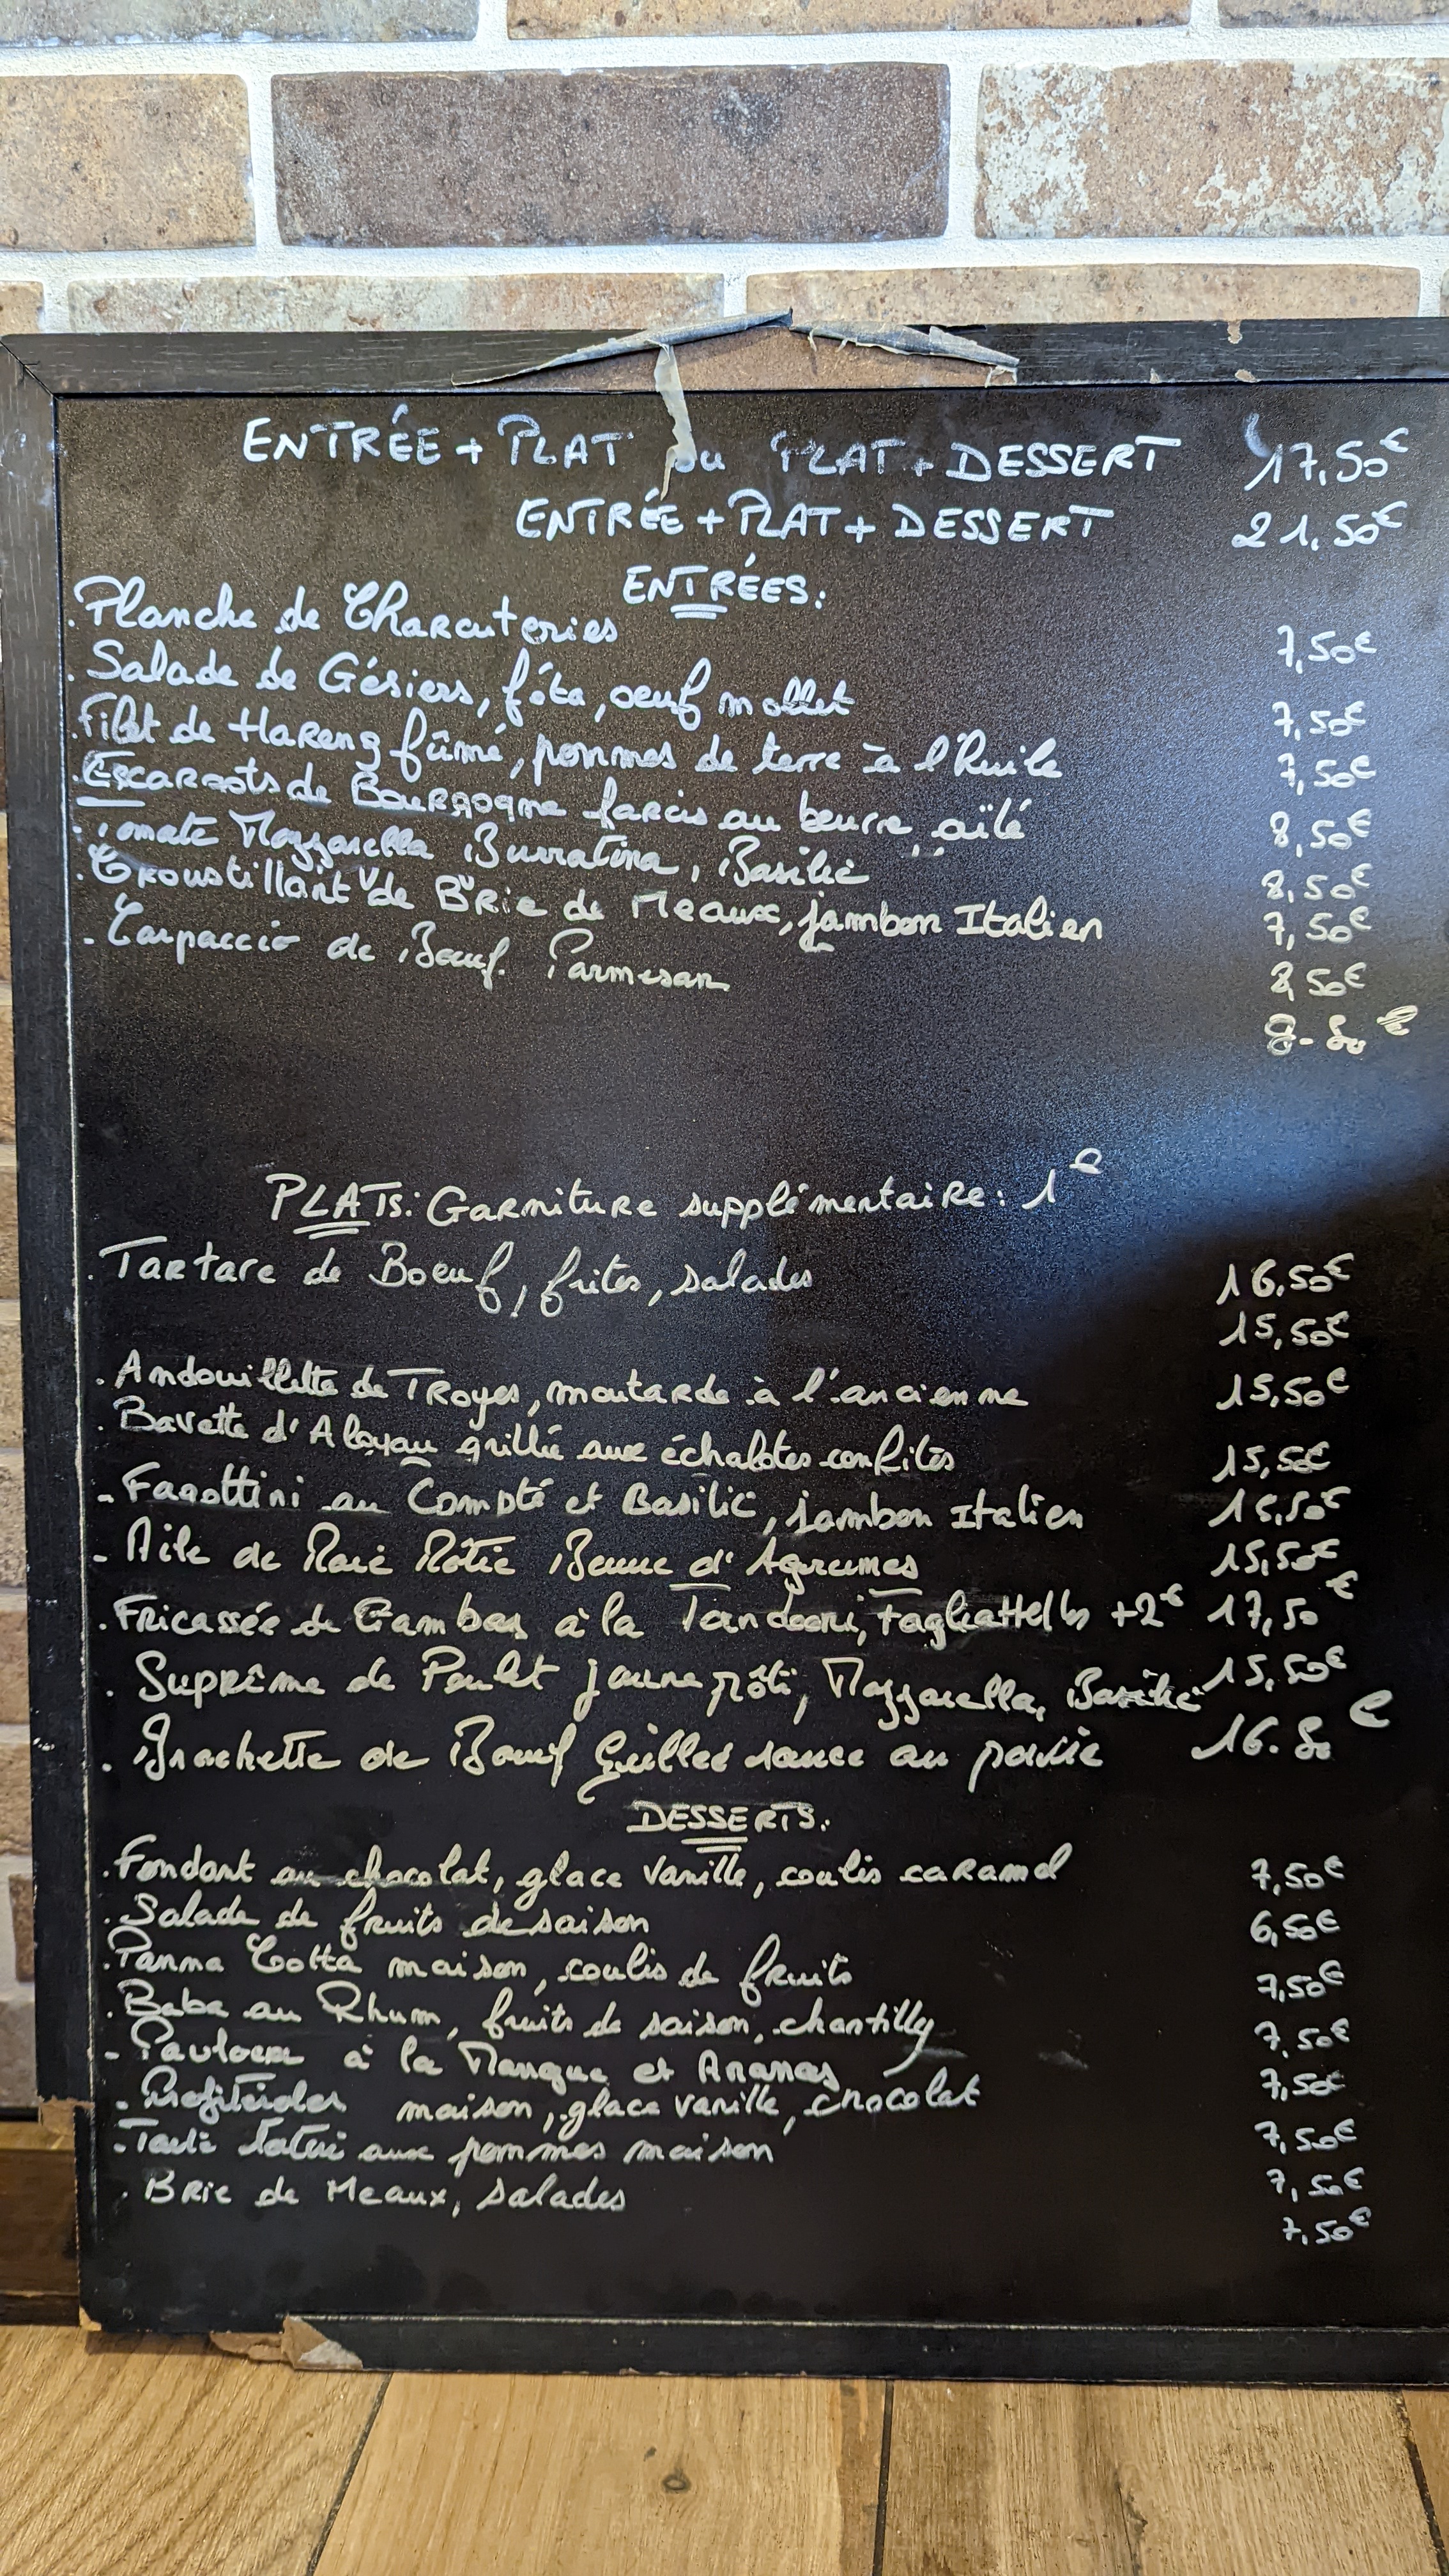 ENTRÉE + PLAT ou PLAT + DESSERT 17,50€
ENTRÉE + PLAT + DESSERT 21,50€
ENTRÉES:
. Planche de Charcuteries 7,50€
. Salade de Gésiers, féta, oeuf mollet 7,50€
. Filet de Hareng fûmé, pommes de terre à l'huile 7,50€
. Escargots de Bourgogne farcis au beurre aïlé 8,50€
. Tomate Mozzarella Burratina, Basilic 8,50€
. Croustillant de Brie de Meaux, jambon Italien 7,50€
- Carpaccio de Boeuf. Parmesan 8,50€
PLATS: Garniture supplémentaire: 1€
. Tartare de Boeuf, frites, salades 16,50€
15,50€
. Andouillette de Troyes, moutarde à l'ancienne 15,50€
. Bavette d'Aloyau grillée aux échalotes confites 15,50€
- Fagottini au Compté et Basilic, jambon Italien 15,50€
- Aile de Raie Rôtie Beurre d'Agrumes 15,50€
. Fricassée de Gambas à la Tandoori, tagliattelles +2€ 17,50€
. Suprême de Poulet jaune rôti, Mozzarella, Basilic 15,50€
. Brochette de Boeuf Grilled sauce au poivre 16.50€
DESSERTS:
. Fondant au chocolat, glace vanille, coulis caramel 7,50€
. Salade de fruits de saison 6,50€
. Panna Cotta maison, coulis de fruits 7,50€
. Baba au Rhum, fruits de saison, chantilly 7,50€
- Pavlova à la Mangue et Ananas 7,50€
- Profiteroles maison, glace vanille, chocolat 7,50€
- Tarte tatin aux pommes maison 7,50€
. Brie de Meaux, salades 7,50€